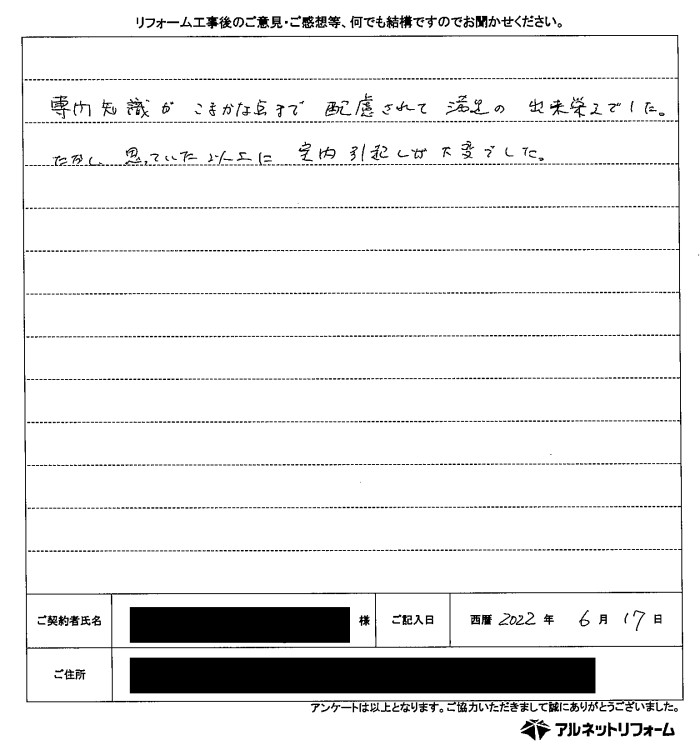 リフォーム工事後のご意見・ご感想等、何でも結構ですのでお聞かせください。
専門知識が こまかな点まで 配慮されて 満足の 出来栄えでした。
ただし、思っていた以上に 室内引越しが 大変でした。
ご契約者氏名 様 ご記入日 西暦 2022 年 6 月 17 日
ご住所
アンケートは以上となります。ご協力いただきまして誠にありがとうございました。
アルネットリフォーム